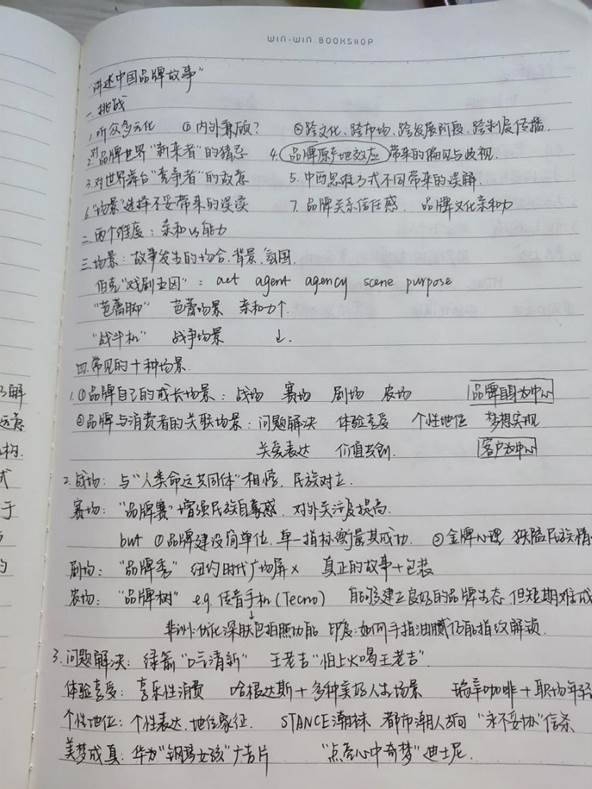 WIN-WIN BOOKSHOP
"讲述中国品牌故事"
一.挑战
1.听众多元化 ①内外兼顾? ②跨文化、跨市场、跨发展阶段、跨制度传播.
2.对品牌世界"新来者"的猜忌 4.品牌原产地效应 带来的偏见与歧视.
3.对世界舞台"竞争者"的敌意 5.中西思维方式不同带来的误解.
6."场景"选择不妥带来的误读 7.品牌关系信任感、品牌文化亲和力
二.两个维度:亲和 vs 能力
三.场景:故事发生的场合.背景.氛围.
伯克"戏剧五因":act agent agency scene purpose
"芭蕾脚" 芭蕾场景 亲和力↑.
"战斗机" 战争场景 ↓.
四.常见的十种场景.
1.①品牌自己的成长场景:战场 赛场 剧场 农场 品牌自身为中心
②品牌与消费者的关联场景:问题解决 体验享受 个性地位 梦想实现
关爱表达 价值共创. 客户为中心
2.战场:与"人类命运共同体"相悖,民族对立.
赛场:"品牌赛"增强民族自豪感,对外关注度提高.
but ①品牌建设简单位,单一指标衡量其成功. ②金牌心理 狭隘民族情
剧场:"品牌秀" 纽约时代广场屏× 真正的故事+包装
农场:"品牌树" eg.传音手机(Tecno) 能够建立良好的品牌生态,但短期难成
非洲:优化深肤色拍照功能 印度:如何手指油腻仍能指纹解锁.
3.问题解决:绿箭"口气清新" 王老吉"怕上火喝王老吉".
体验享受:享乐性消费 哈根达斯+多种美好人生场景 瑞幸咖啡+职场年轻
个性地位:个性表达.地位象征. STANCE潮袜 都市潮人 "永不妥协"信条
美梦成真:华为"钢琴女孩"广告片 "点亮心中奇梦"迪士尼.